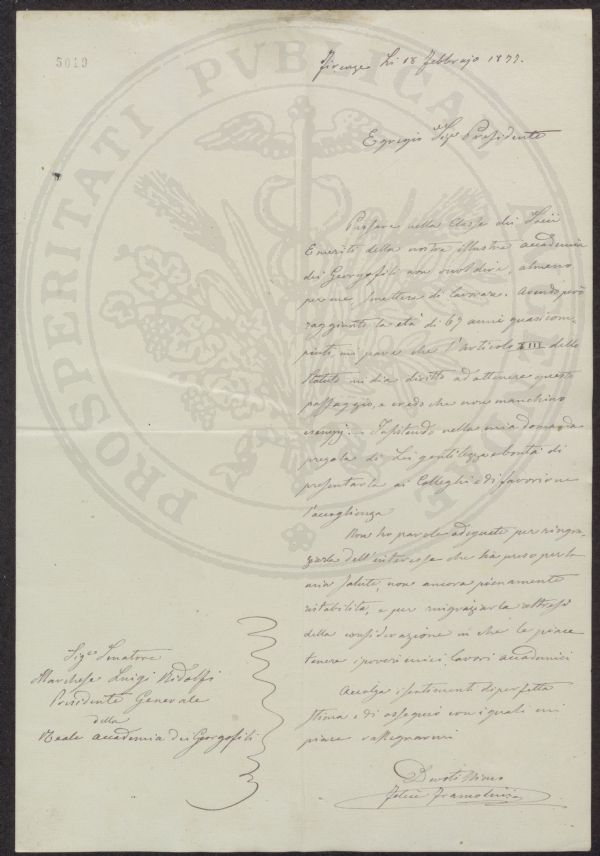 5019
Firenze li 18 Febbrajo 1877.
Egregio Sigr Presidente
Passare nella Classe dei Socii
Emeriti della nostra illustre accademia
dei Georgofili non vuol dire, almeno
per me, smettere di lavorare. Avendo però
raggiunto la età di 69 anni quasi com-
piuti, mi pare che l'articolo XIII dello
Statuto mi dia diritto ad ottenere questo
passaggio, e credo che non manchino
esempj. Insistendo nella mia domanda
prego la di Lei gentilezza e bontà di
presentarla ai Colleghi e di favorirne
l'accoglienza
Non ho parole adequate per ringra-
ziarla dell'interesse che ha preso per la
mia salute, non ancora pienamente
ristabilita, e per ringraziarla altresì
della considerazione in che le piace
tenere i poveri miei lavori accademici
Accolga i sentimenti di perfetta
stima e di ossequio con i quali mi
piace rassegnarmi
Devotissimo
Felice
Sigre Senatore
Marchese Luigi Ridolfi
Presidente Generale
della
Reale accademia dei Georgofili
PROSPERITATI PVBLICAE